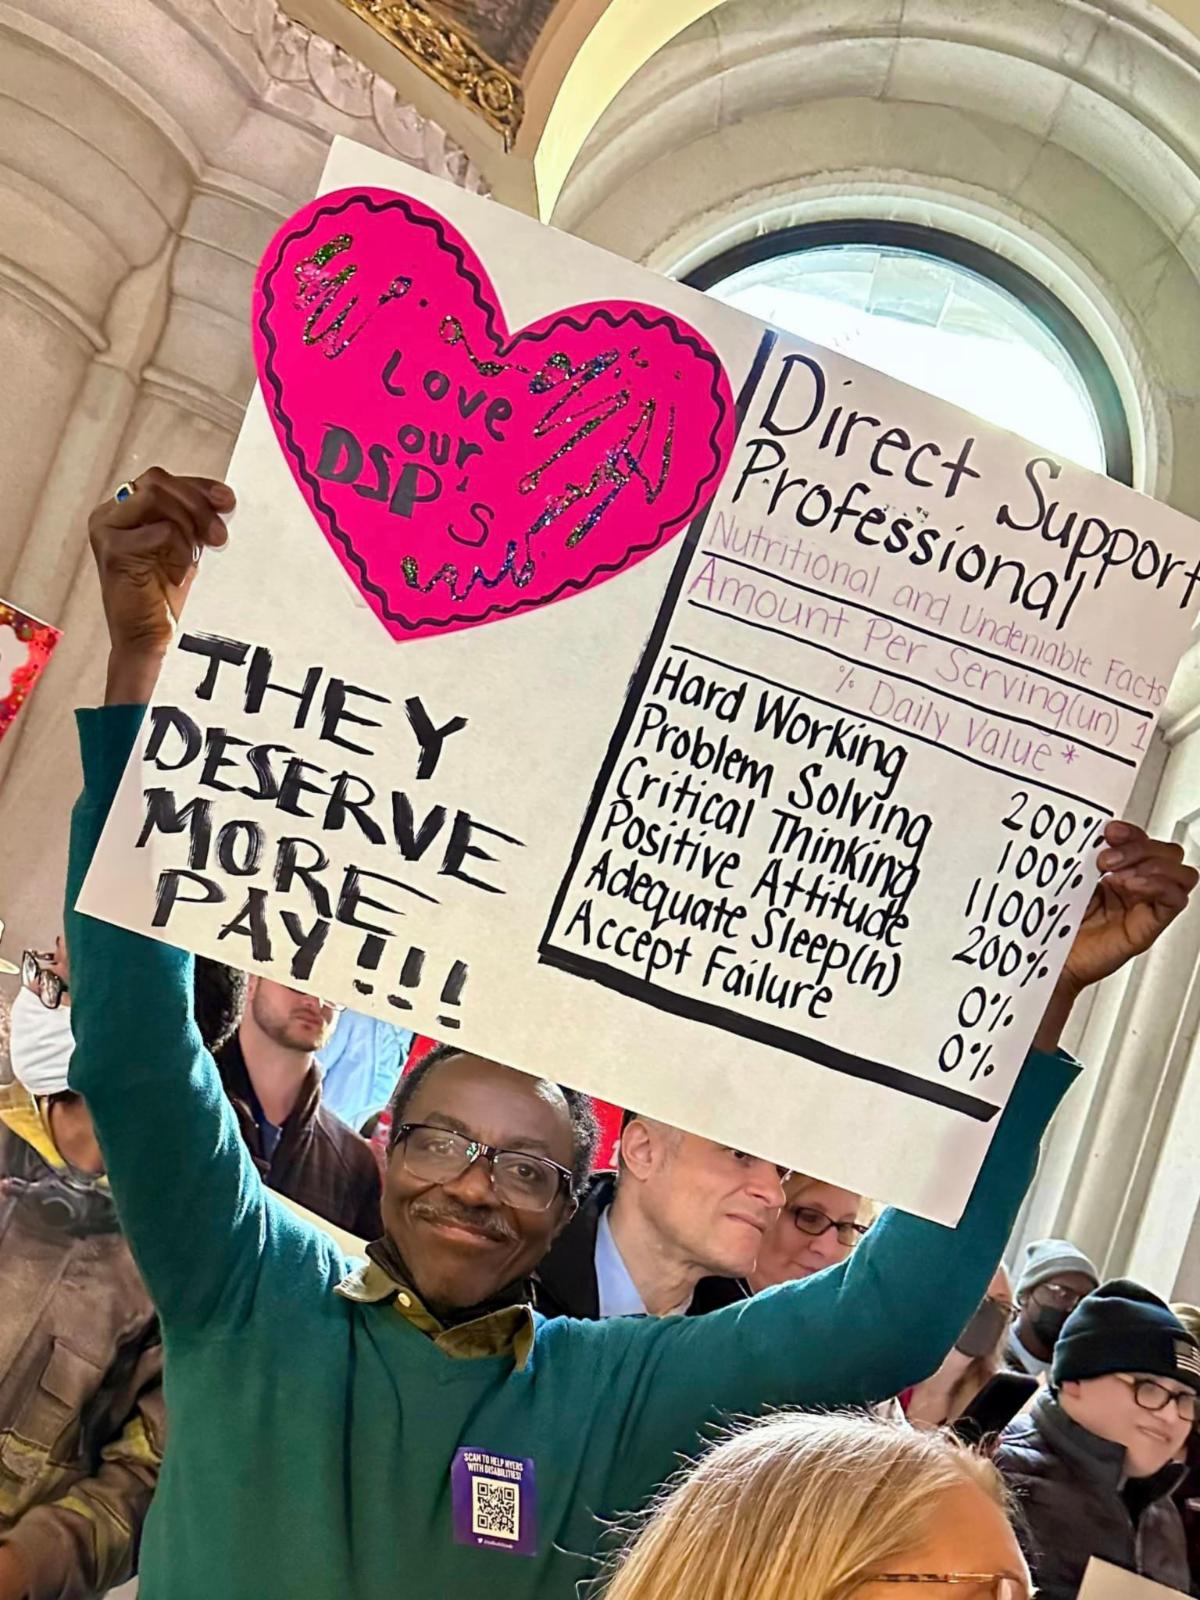 Love
our
DSP's
THEY
DESERVE
MORE
PAY!!!
Direct Support
Professional
Nutritional and Undeniable Facts
Amount Per Serving(un) 1
% Daily Value*
Hard Working 200%
Problem Solving 100%
Critical Thinking 1100%
Positive Attitude 200%
Adequate Sleep(h) 0%
Accept Failure 0%
SCAN TO HELP NYERS
WITH DISABILITIES!